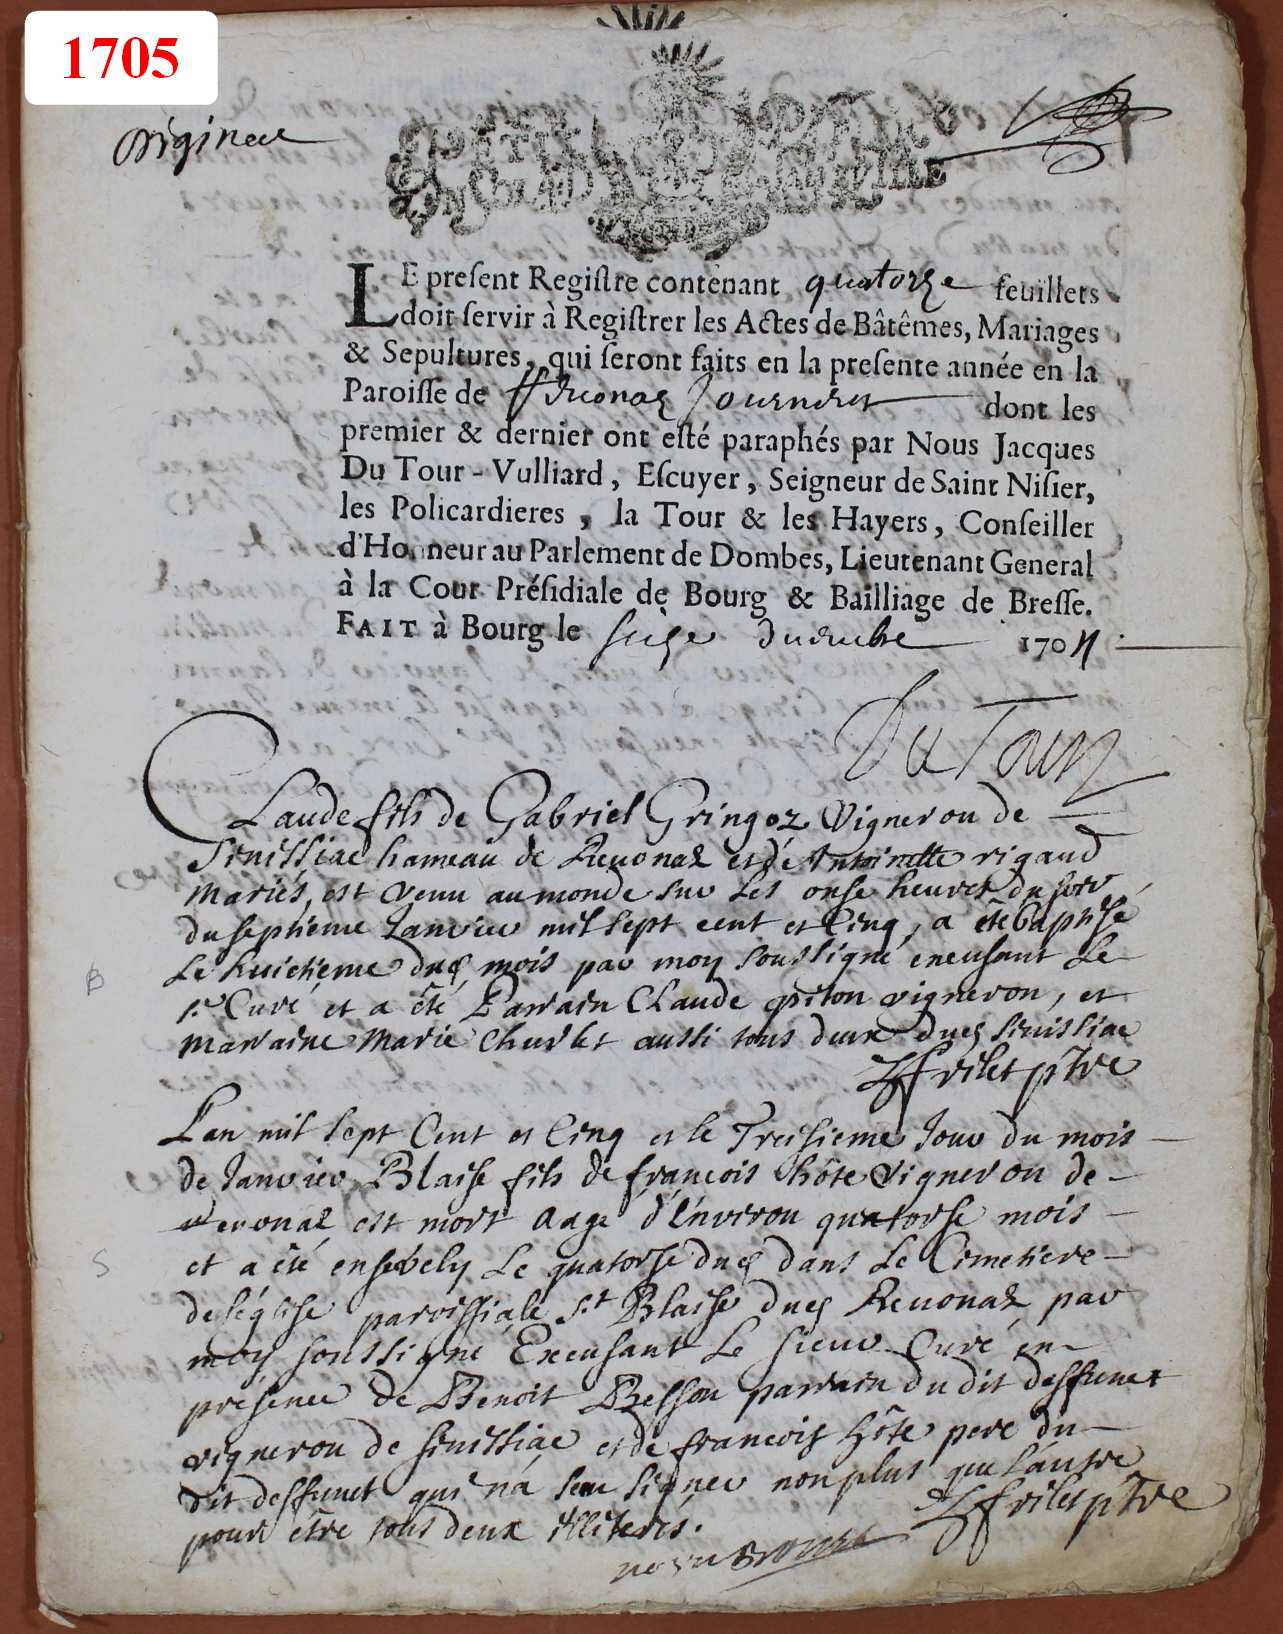 1705
Originel
LE present Registre contenant quatorze feuillets
doit servir à Registrer les Actes de Bâtêmes, Mariages
& Sepultures, qui seront faits en la presente année en la
Paroisse de Reuonas Journans dont les
premier & dernier ont esté paraphés par Nous Jacques
Du Tour-Vulliard, Escuyer, Seigneur de Saint Nisier,
les Policardieres, la Tour & les Hayers, Conseiller
d'Honneur au Parlement de Dombes, Lieutenant General
à la Cour Présidiale de Bourg & Bailliage de Bresse.
FAIT à Bourg le seize decembre 1704
Du Tour
Claude fils de Gabriel Gringoz Vigneron de
Senissiac hameau de Reuonaz et de Antoinette rigaud
mariés, est venu au monde sur les onse heures du soir
du septieme Janvier mil sept cent et Cinq, a été baptisé
B
Le huictieme dud. mois par moy soussigné excusant Le
sr. Curé et a êté Parrain Claude piton vigneron, et
marraine Marie Churlet aussi tous deux dud. Senissiac
frilet ptre
L'an mil sept Cent et Cinq et le Treisieme Jour du mois
de Janvier Blaise fils de françois hôte Vigneron de
Revonaz est mort Aagé d'Environ quatorse mois
S
et a été ensevely Le quatorse dud. dans Le Cimetiere
de l'église paroissiale St Blaise dud. Revonaz par
moy soussigné Excusant Le sieur Curé en
présence de Benoit Besson parrain du dit deffunct
vigneron de senissiac et de françois hôte pere du
dit deffunct qui n'a sceu signer non plus que l'autre
pour être tous deux illiterés.
frilet ptre